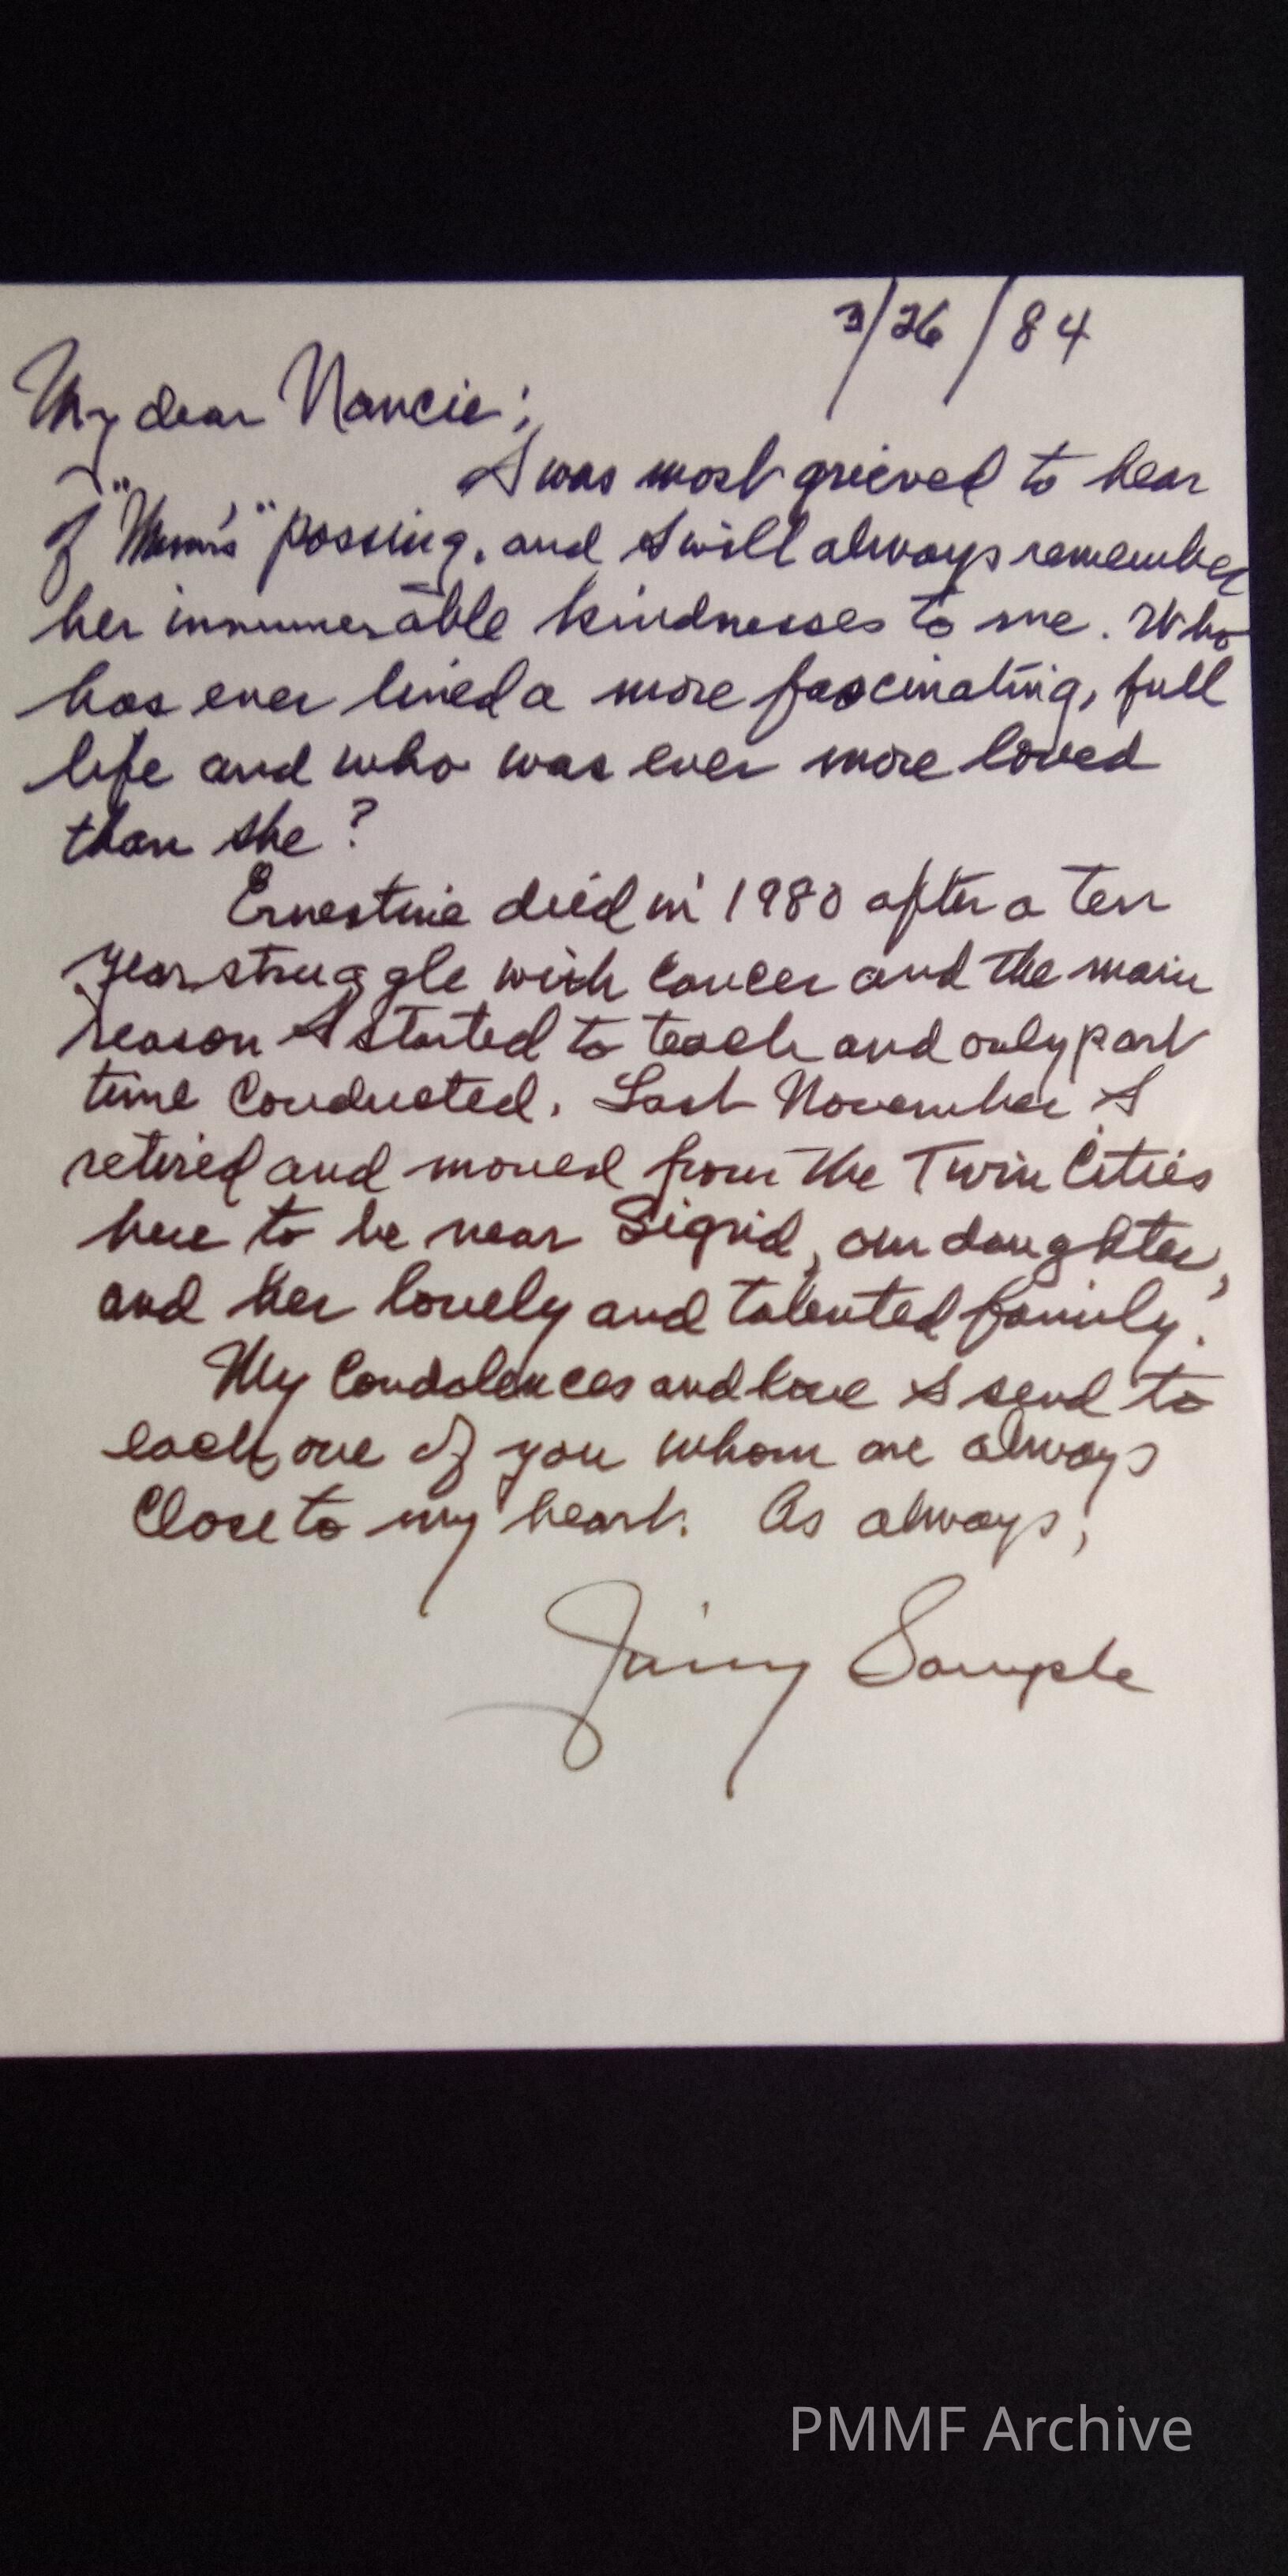 3/26/84
My dear Nancie;
I was most grieved to hear
of "Mum's" passing, and I will always remember
her innumerable kindnesses to me. Who
has ever lived a more fascinating, full
life and who was ever more loved
than she?
Ernestine died in 1980 after a ten
year struggle with cancer and the main
reason I started to teach and only part
time conducted. Last November I
retired and moved from the Twin Cities
here to be near Sigrid, our daughter,
and her lovely and talented family.
My condolences and love I send to
each one of you whom are always
close to my heart. As always,
Jimmy Sample
PMMF Archive